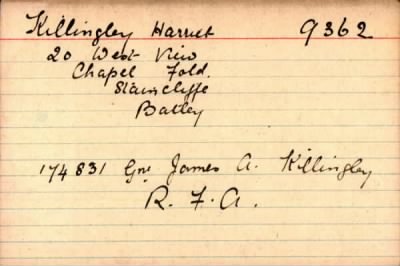 Killingley Harriet 9362
20 West View
Chapel Fold.
Staincliffe
Batley
174831 Gnr James A. Killingley
R. F. A.